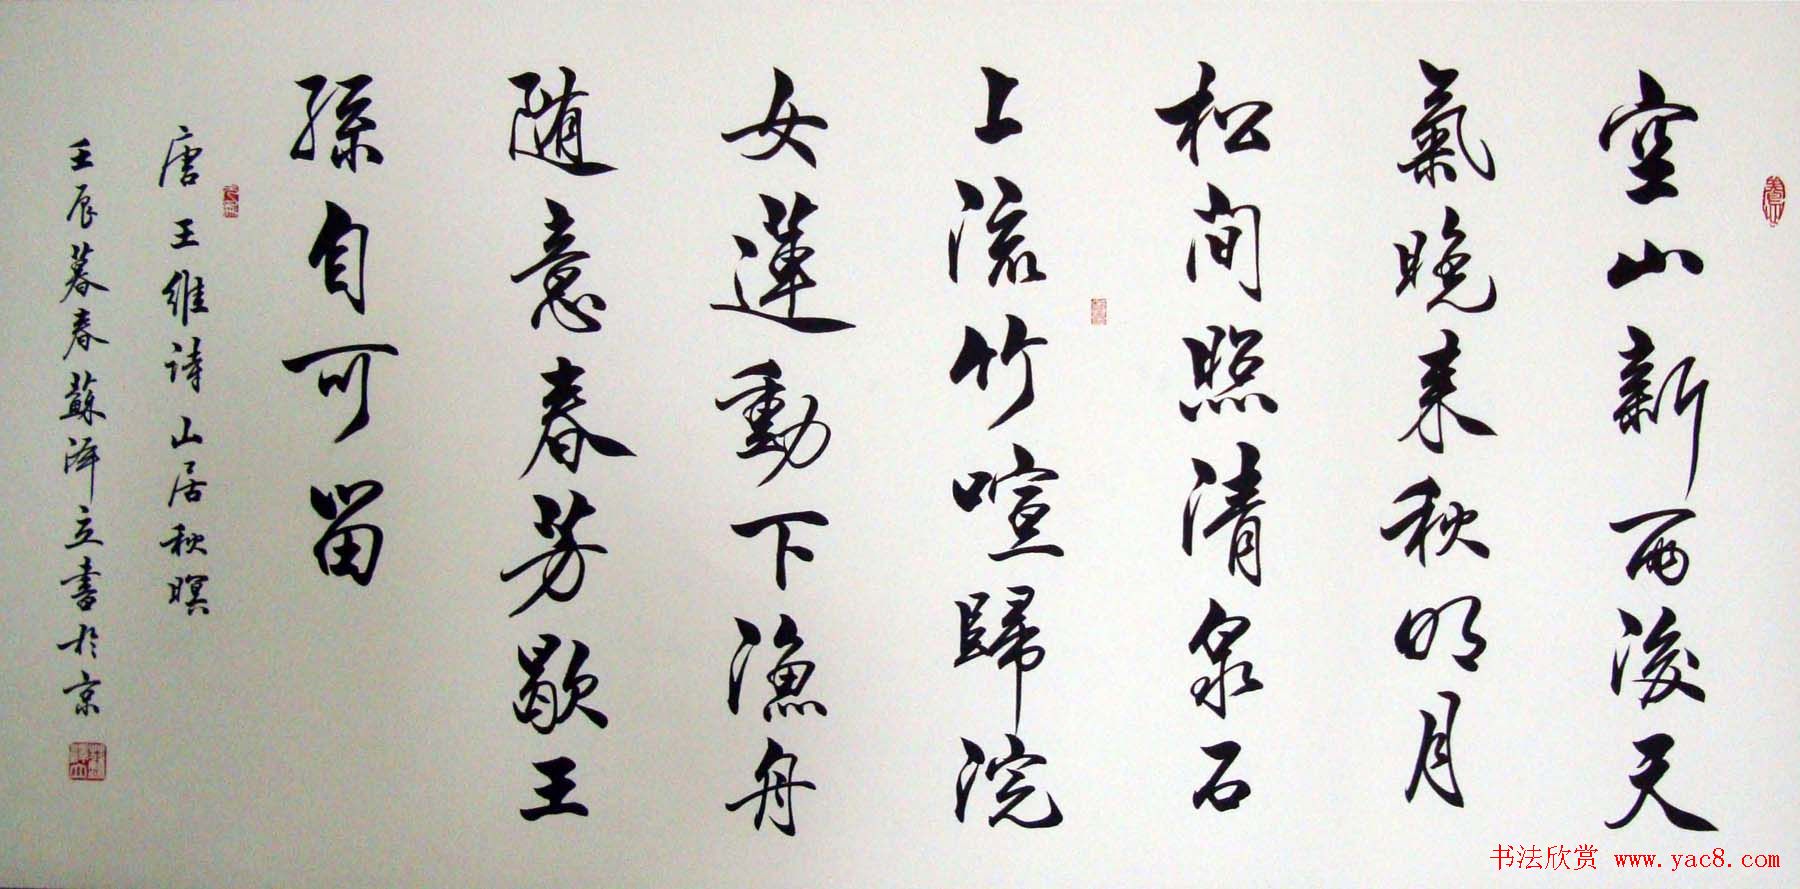 空山新雨後天
氣晚来秋明月
松间照清泉石
上流竹喧歸浣
女蓮動下漁舟
随意春芳歇王
孫自可留
唐王維诗山居秋暝
壬辰暮春蘇泽立書於京
书法欣赏 www.yac8.com